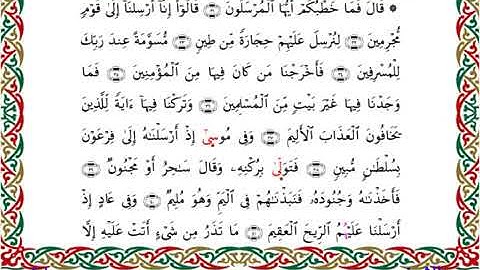 ۞ قَالَ فَمَا خَطْبُكُمْ أَيُّهَا ٱلْمُرْسَلُونَ ۝ قَالُوٓا۟ إِنَّآ أُرْسِلْنَآ إِلَىٰ قَوْمٍ
مُّجْرِمِينَ ۝ لِنُرْسِلَ عَلَيْهِمْ حِجَارَةً مِّن طِينٍ ۝ مُّسَوَّمَةً عِندَ رَبِّكَ
لِلْمُسْرِفِينَ ۝ فَأَخْرَجْنَا مَن كَانَ فِيهَا مِنَ ٱلْمُؤْمِنِينَ ۝ فَمَا
وَجَدْنَا فِيهَا غَيْرَ بَيْتٍ مِّنَ ٱلْمُسْلِمِينَ ۝ وَتَرَكْنَا فِيهَآ ءَايَةً لِّلَّذِينَ
يَخَافُونَ ٱلْعَذَابَ ٱلْأَلِيمَ ۝ وَفِى مُوسَىٰٓ إِذْ أَرْسَلْنَٰهُ إِلَىٰ فِرْعَوْنَ
بِسُلْطَٰنٍ مُّبِينٍ ۝ فَتَوَلَّىٰ بِرُكْنِهِۦ وَقَالَ سَٰحِرٌ أَوْ مَجْنُونٌ ۝
فَأَخَذْنَٰهُ وَجُنُودَهُۥ فَنَبَذْنَٰهُمْ فِى ٱلْيَمِّ وَهُوَ مُلِيمٌ ۝ وَفِى عَادٍ إِذْ
أَرْسَلْنَا عَلَيْهِمُ ٱلرِّيحَ ٱلْعَقِيمَ ۝ مَا تَذَرُ مِن شَىْءٍ أَتَتْ عَلَيْهِ إِلَّا